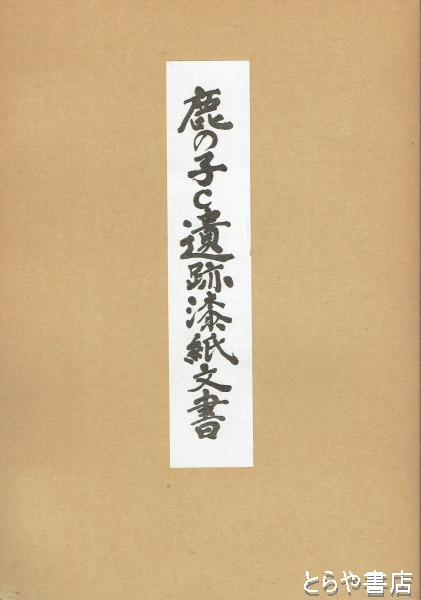 鹿の子C遺跡漆紙文書
とらや書店